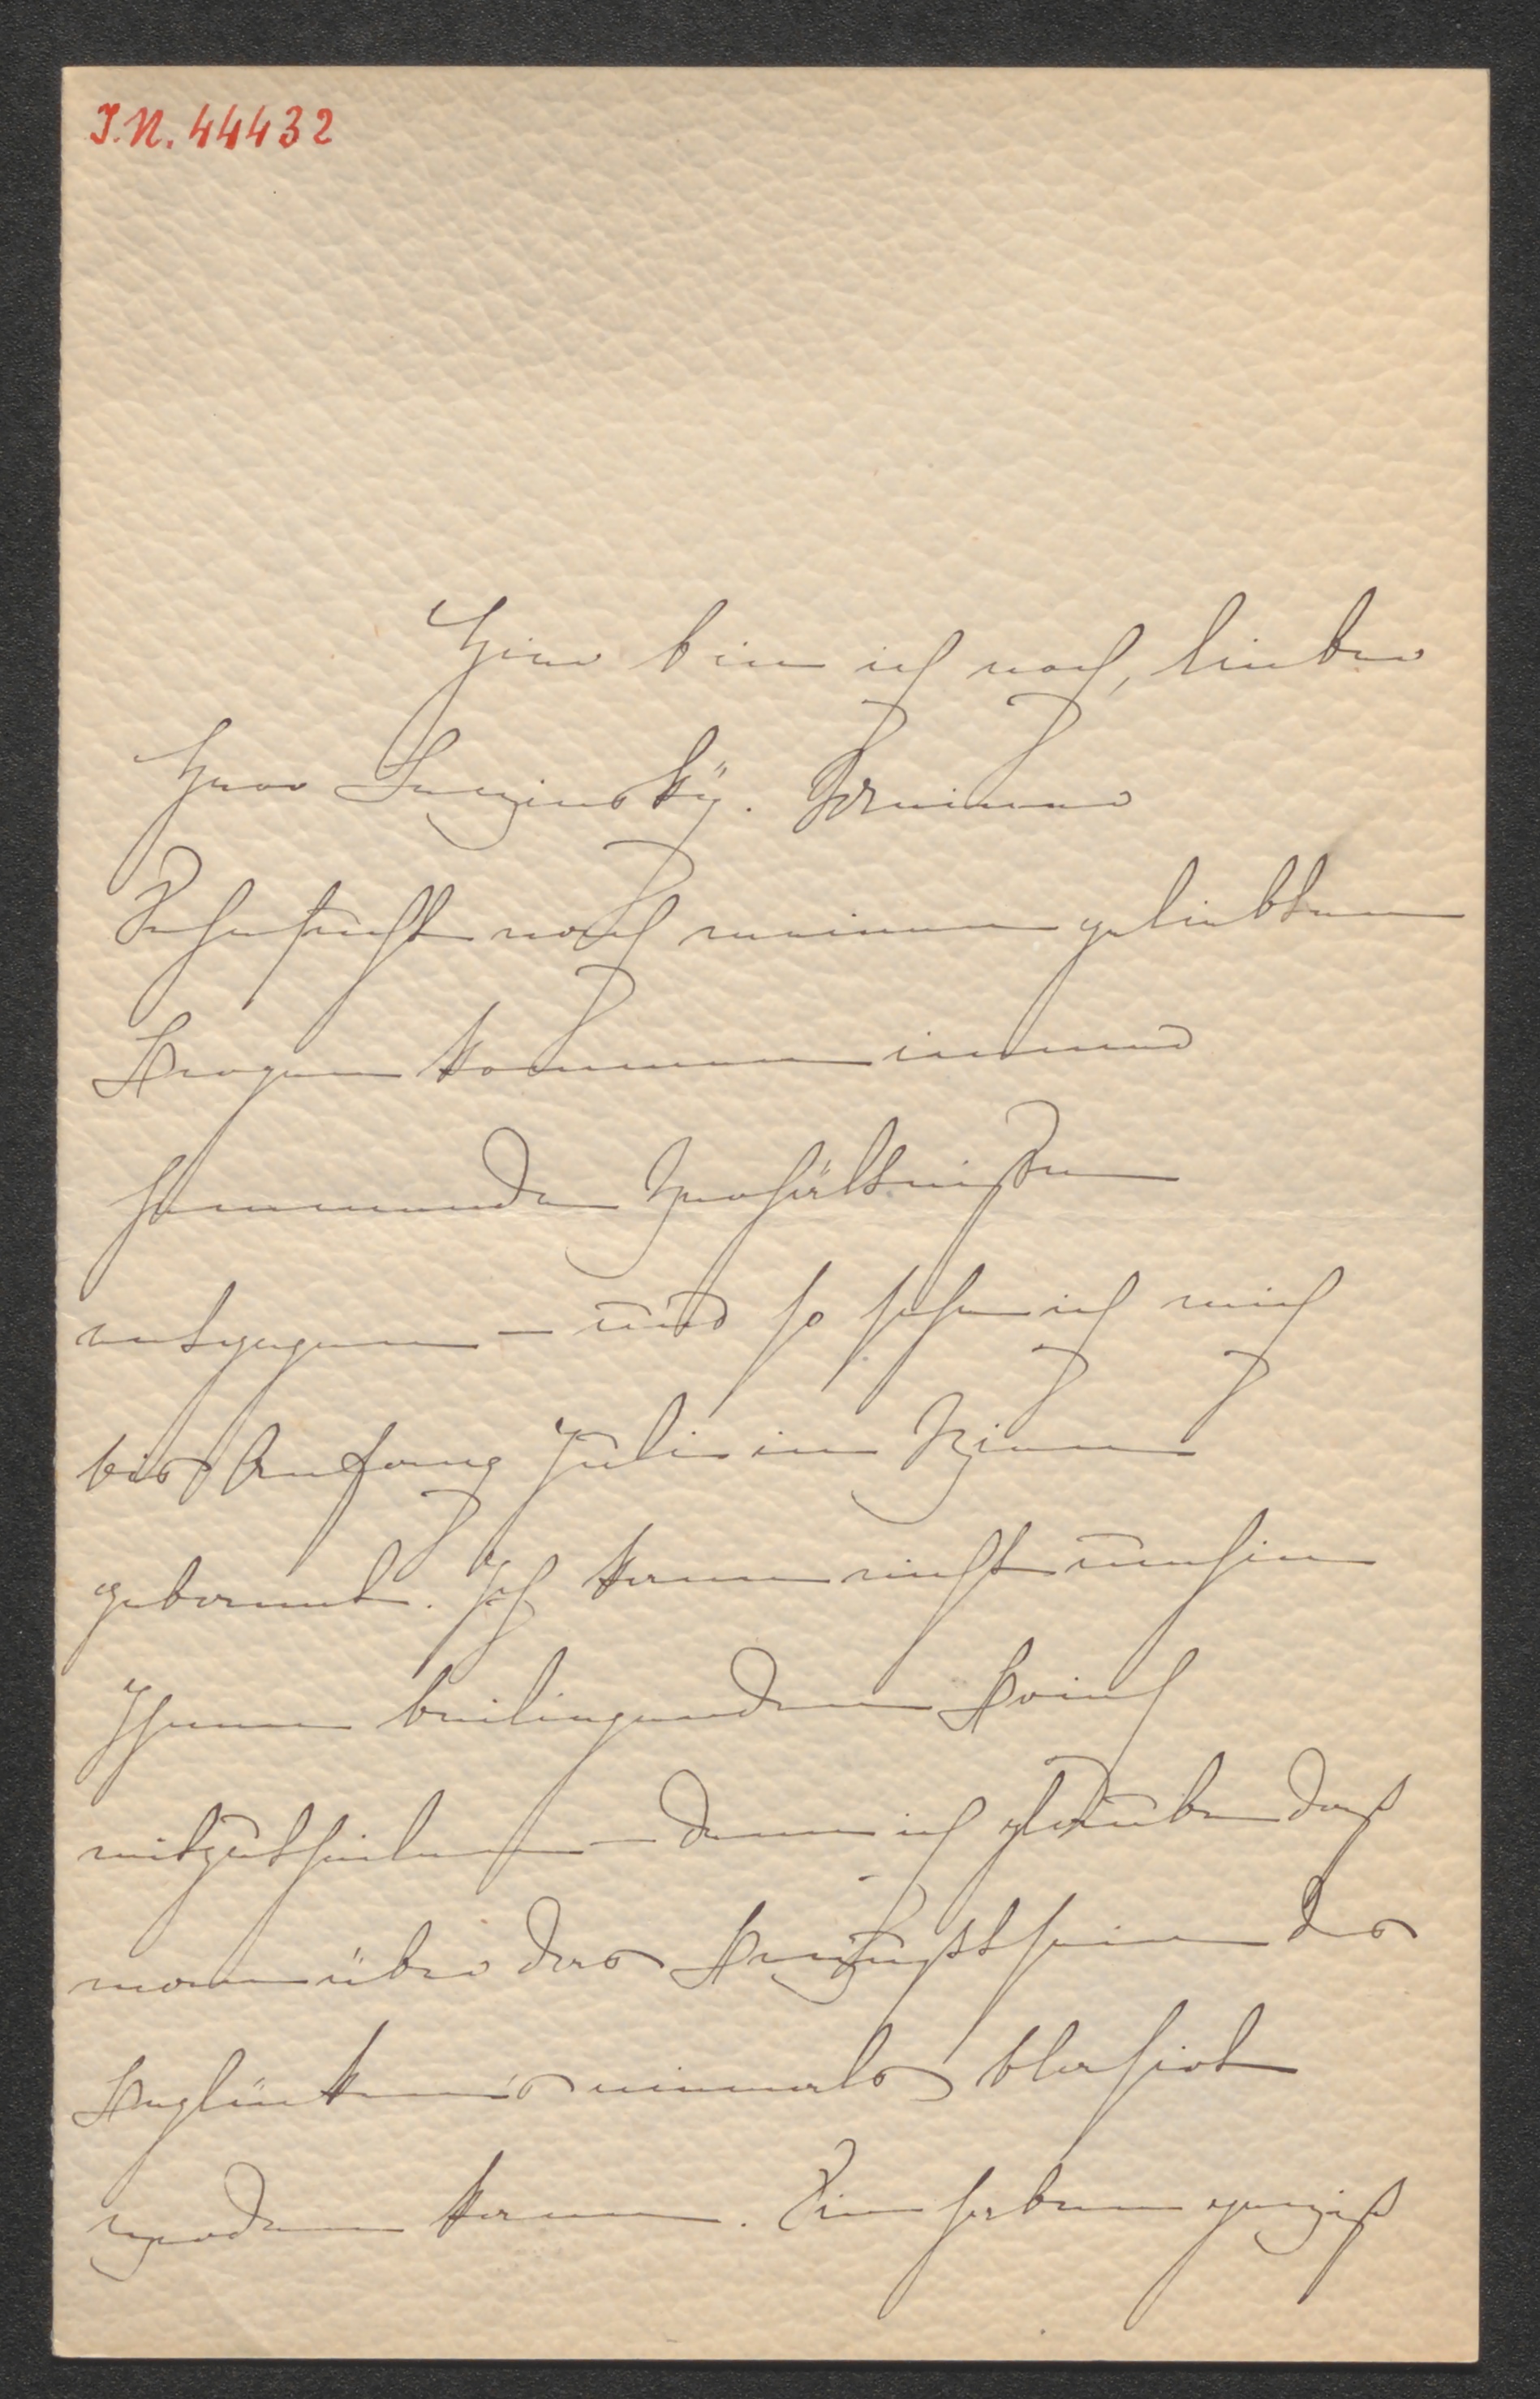 I.N. 44432
Hier bin ich noch, lieber
Herr Lewinský. Meiner
Sehnsucht nach meinem geliebten
kommen immer
hemmende Verhältnisse
entgegen – und so sehe ich mich
bis Anfang Juli in Wien
gebannt. Ich kann nicht umhin
Ihnen beiliegenden Brief
mitzutheilen – denn ich glaube daß
man über das Bewußtsein des
niemals blasirt
werden kann. Sie haben gewiß